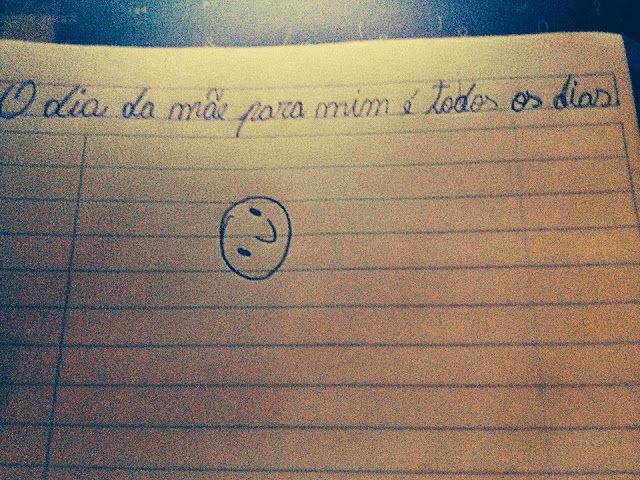 O dia da mãe para mim é todos os dias!